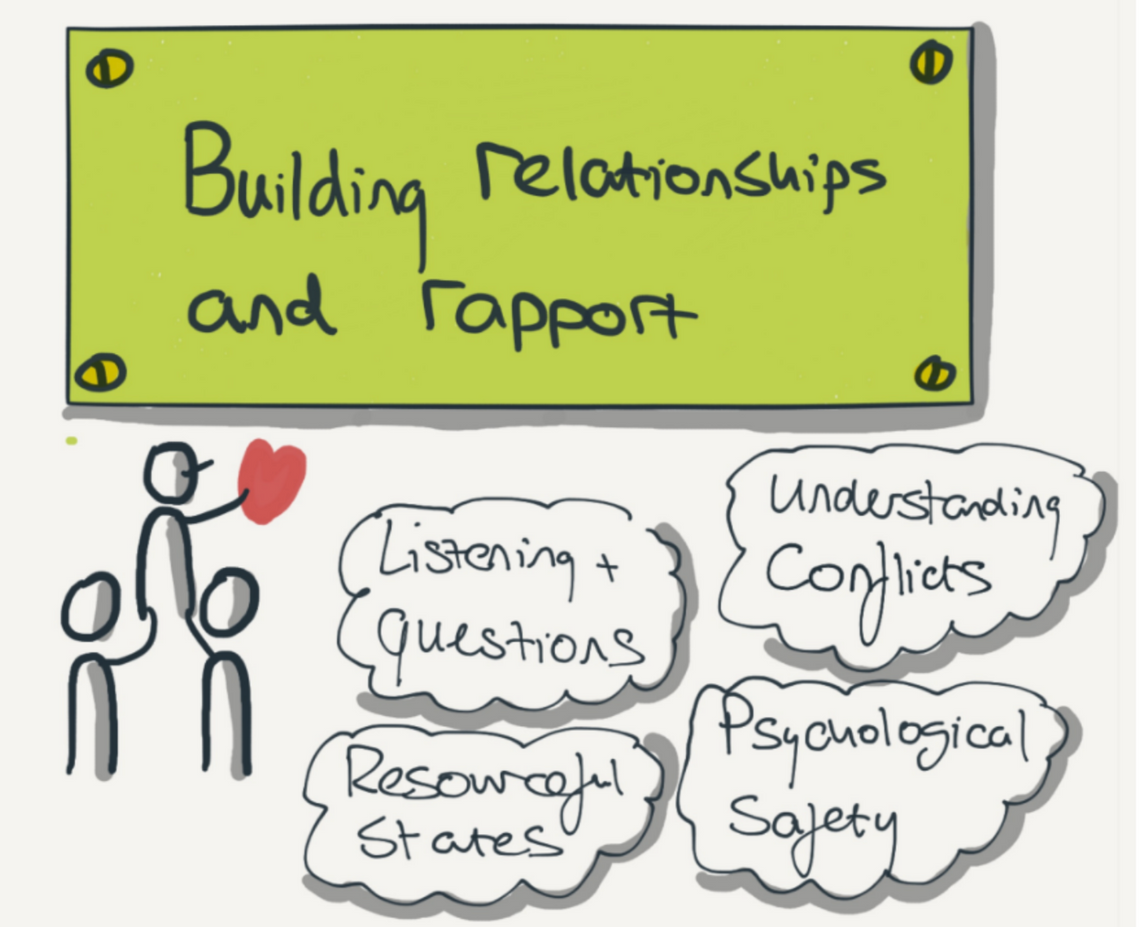 Building relationships
and rapport
Listening +
Questions
Understanding
Conflicts
Resourceful
States
Psychological
Safety